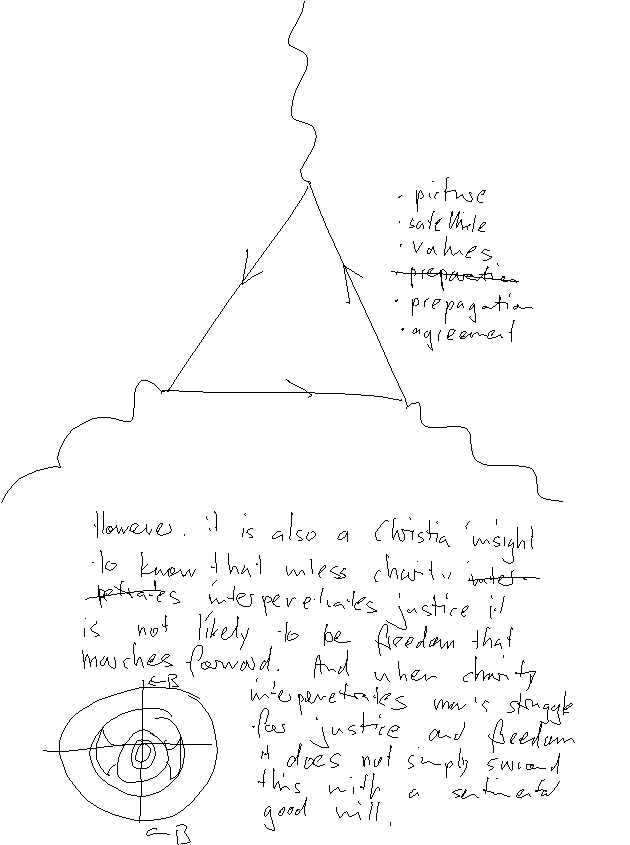 · picture
· satellite
· values
· preparation
· propagation
· agreement
However. it is also a Christia insight
to know that unless charity inter-
petrates interpenetrates justice it
is not likely to be freedom that
marches forward. And when charity
interpenetrates man's struggle
for justice and freedom
it does not simply surround
this with a sentimental
good will.
←B
←B